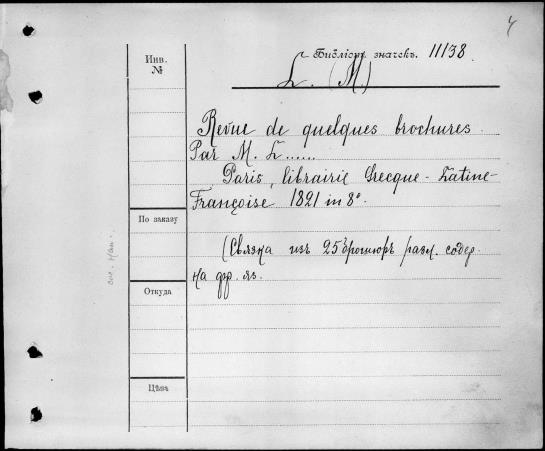 4
Инв.
№
Библіот. значекъ. 11138
L. (M.)
Revue de quelques brochures.
Par M. L......
Paris, librairie Grecque-Latine-
Françoise 1821 in 8°.
По заказу
(Связка изъ 25 брошюръ разл. содер.
на фр. яз.
Откуда
Цѣна